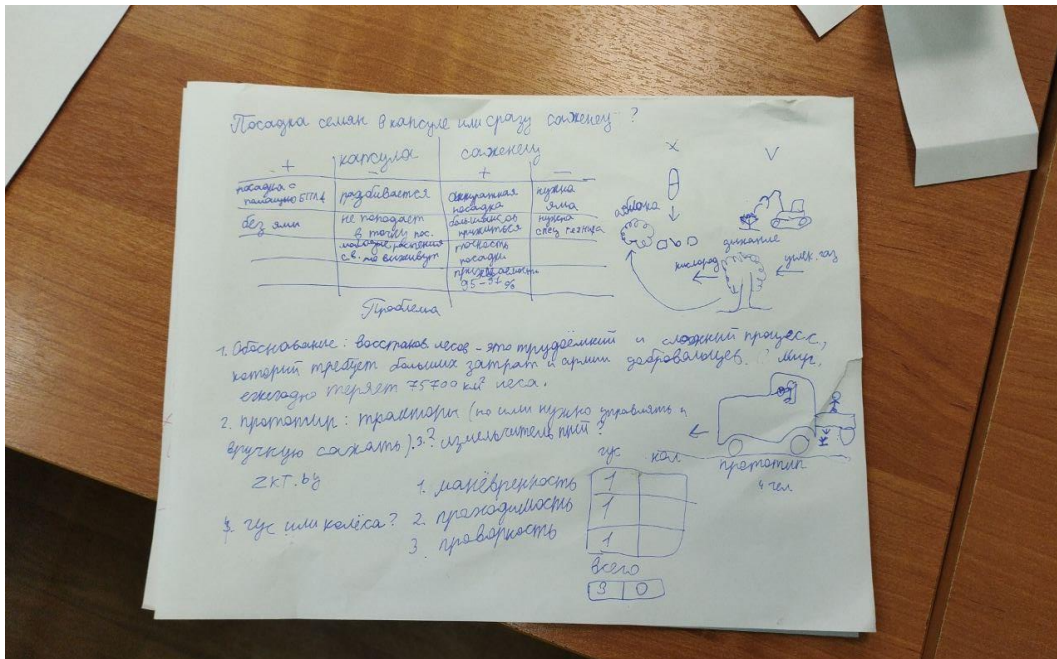 Посадка семян в капсуле или сразу саженец ?
капсула саженец
+ − + −
посадка с помощью БПЛА
разбивается
аккуратная посадка
нужна яма
без ямы
не попадает в точку пос.
больше шансов
нужна спец техника
точность посадки
95-97 %
Проблема
X V
облака
дыхание
кислород
углек. газ
1. Обоснование: восстанов лесов - это трудоёмкий и сложный процесс,
который требует больших затрат и армии добровольцев. Мир
ежегодно теряет 75700 км леса.
2. прототип: тракторы (но или нужно управлять и
вручную сажать). 3.? измельчитель пней?
zKT.by
прототип
4 чел.
гус кол
1. манёвренность 1
2. проходимость 1
3. 1
4 гус или колёса?
всего
3 0